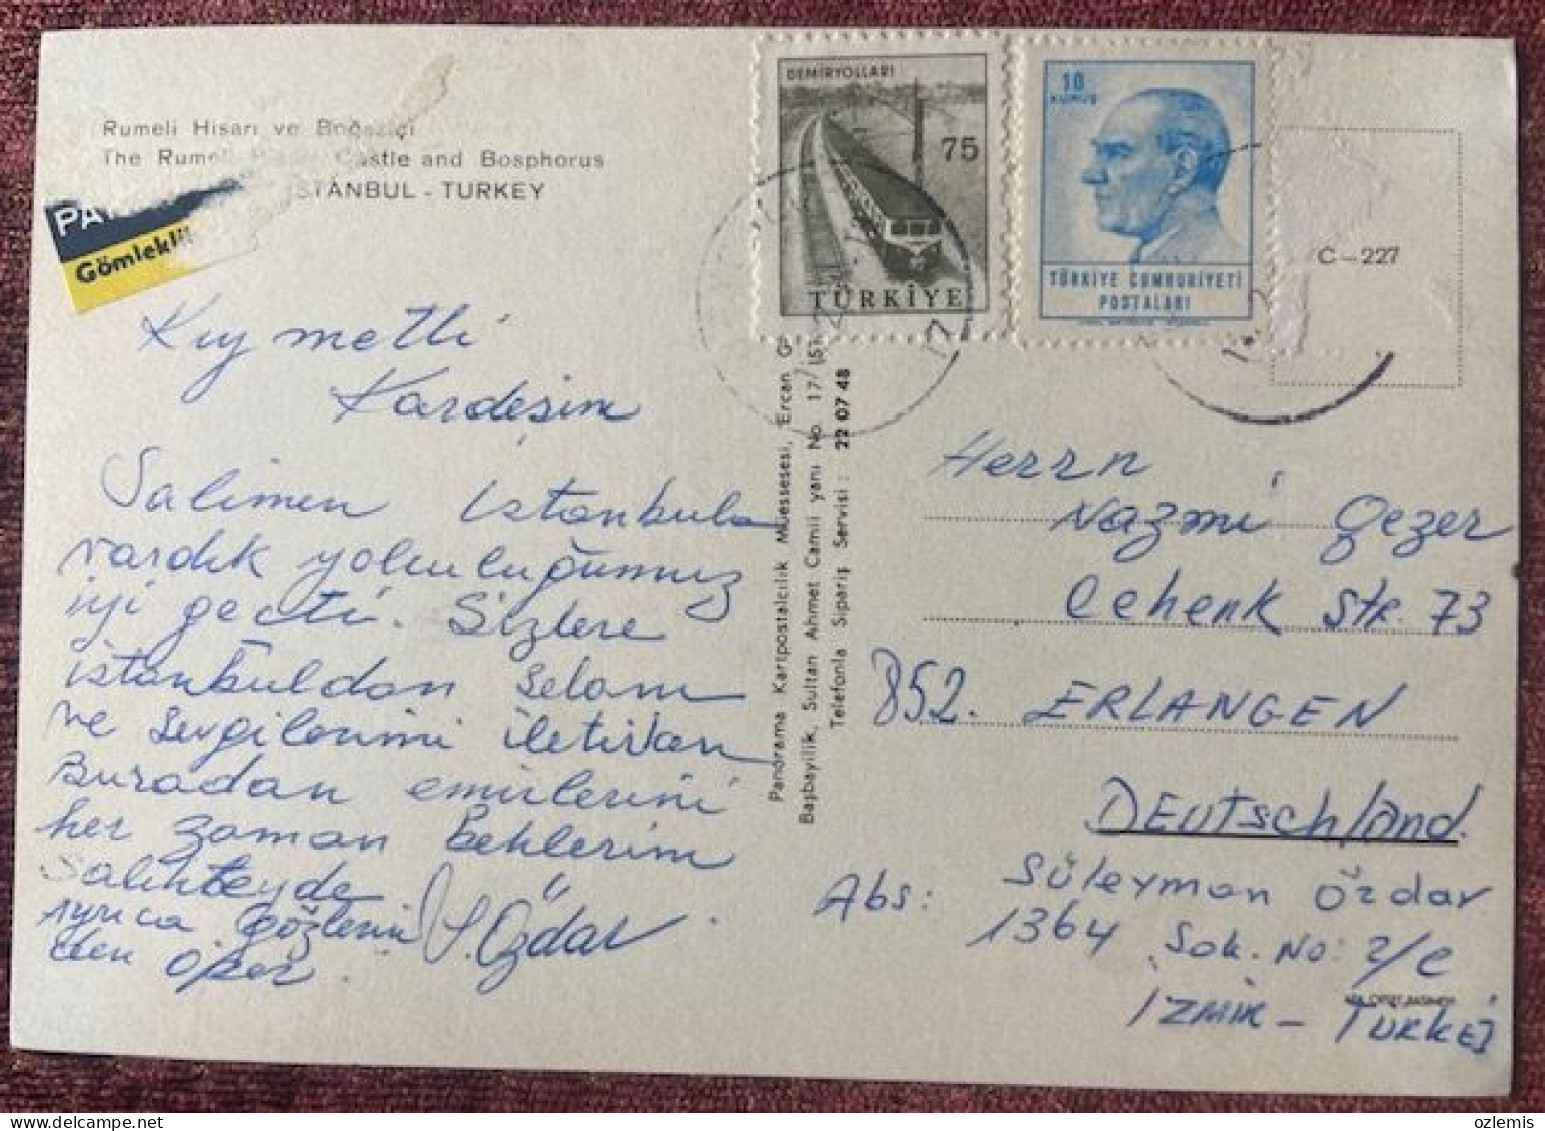 Rumeli Hisarı ve Boğaziçi
The Rumeli Castle and Bosphorus
İSTANBUL - TURKEY
PA
Gömlekli
DEMİRYOLLARI
75
TÜRKİYE
10
KURUŞ
TÜRKİYE CUMHURİYETİ
POSTALARI
C-227
Kıymetli
Kardeşim
Salimen istanbula
vardık yolculuğumuz
iyi geçti. Sizlere
istanbuldan selam
ve sevgilerimi iletirken
Buradan emirlerini
her zaman beklerim
ayrıca gözlerin
den öper.
S. Özdar
Panorama Kartpostalcılık Müessesesi, Ercan
Başbayilik, Sultan Ahmet Camii yanı No. 17
Telefonla Sipariş Servisi : 22 07 48
Herrn
Nazmi Gezer
Cehenk Str. 73
852. ERLANGEN
DEUTSCHLAND.
Abs: Süleyman Özdar
1364 Sok. No: 2/C
İZMİR - TÜRKEİ
ozlemis